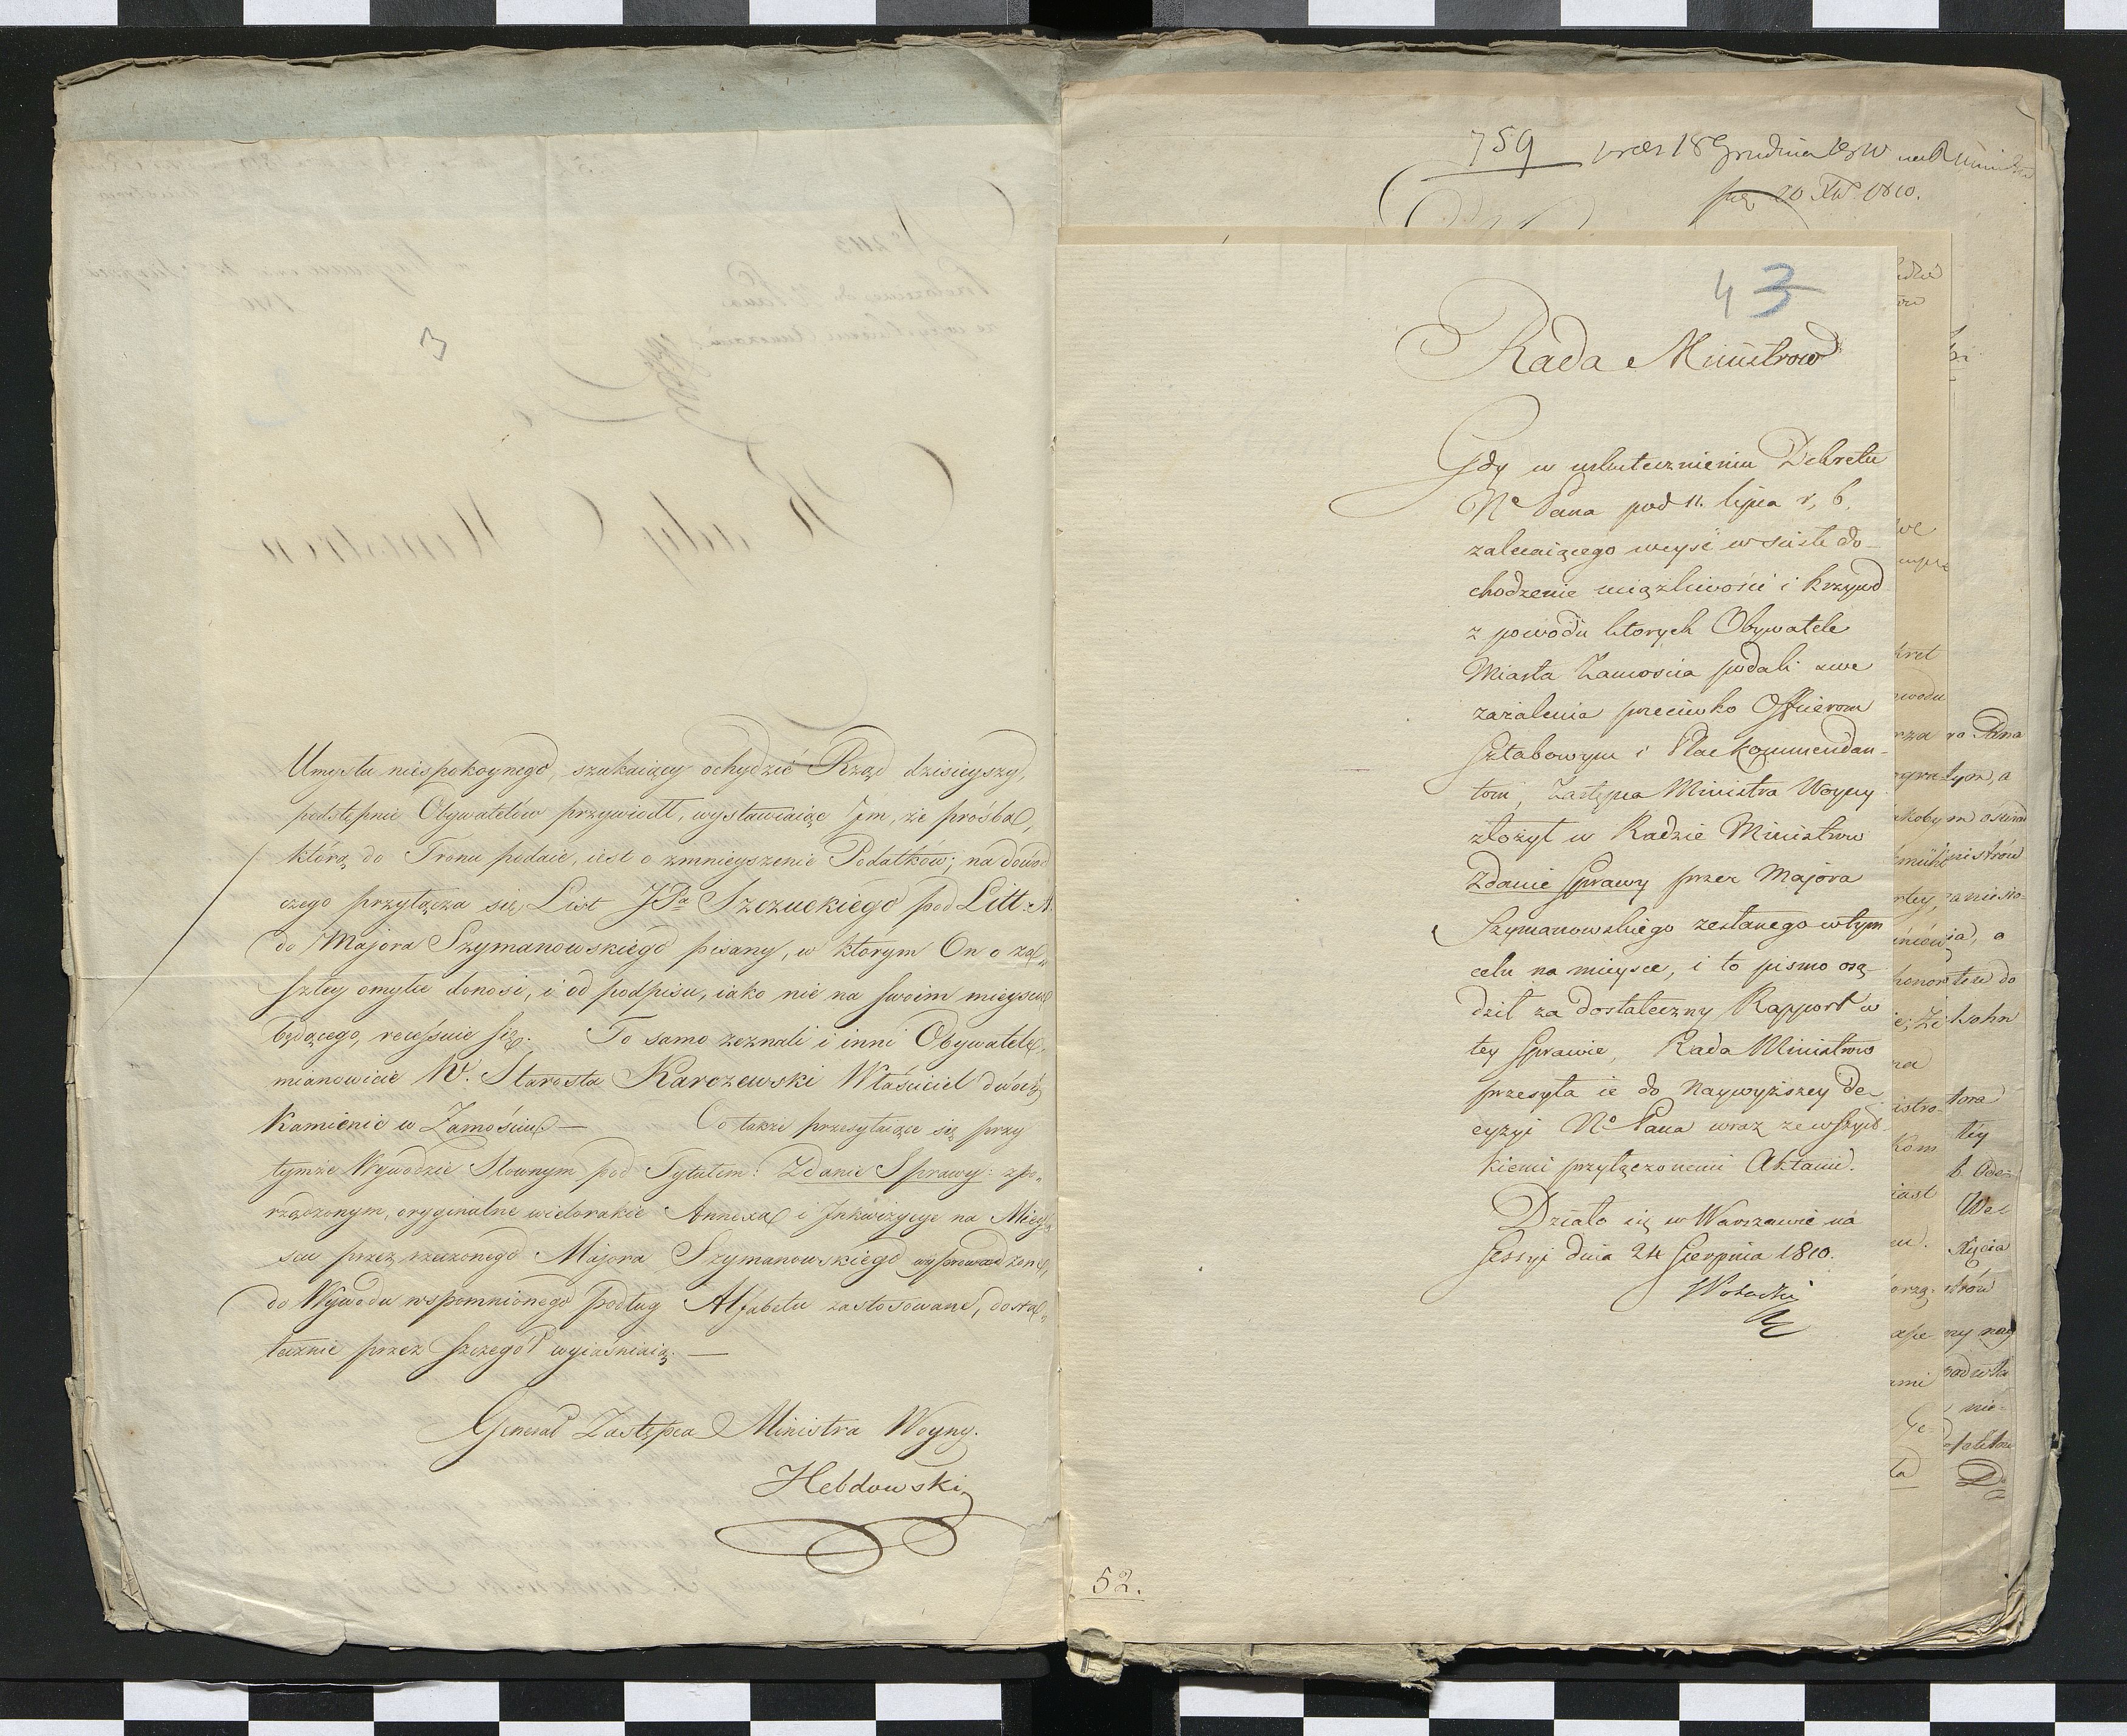 3
Umysłu niespokoynego, szukaiący ochydzić Rząd dzisieyszy,
podstępnie Obywatelów przywiodł, wystawiaiąc Jm, że prośba,
którą do Tronu podaie, iest o zmnieyszenie Podatkow; na dowod
czego przyłącza się List JPa Szczuckiego pod Litt: A.
do Majora Szymanowskiego pisany, w którym On o za„
szłey omyłce donosi, i od podpisu, iako nie na swoim mieyscu
będącego, recessuie się. To samo zeznali i inni Obywatele,
mianowicie W. Starosta Karczewski Właściciel dwóch
Kamienic w Zamościu — Co także przesyłaiące się przy
tymże Wywodzie Słownym pod Tytułem: Zdanie Sprawy: spo„
rządzonym, oryginalne wielorakie Annexa i Jnkwizycye na Miey„
scu przez rzeczonego Majora Szymanowskiego wyprowadzone,
do Wywodu wspomnionego podług Alfabetu zastosowane, dosta„
tecznie przez szczegół wyiaśniaią. —
Generał Zastępca Ministra Woyny.
Hebdowski
759 18 Grudnia
20 1810.
43
Rada Ministrow
Gdy w uskutecznieniu Dekretu
No Pana pod 11. lipca r, b,
zalecaiącego weyść w ścisłe do-
chodzenie uciążliwości i krzywd
z powodu ktorych Obywatele
Miasta Zamoscia podali swe
zażalenia przeciwko Officerom
Sztabowym i Plackommendan-
tom, Zastępca Ministra Woyny
złożył w Radzie Ministrow
Zdanie Sprawy przez Majora
Szymanowskiego zesłanego w tym
celu na mieysce, i to pismo osą-
dził za dostateczny Rapport w
tey Sprawie, Rada Ministrow
przesyła ie do Naywyższey De-
cyzyi No Pana wraz ze wszyst-
kiemi przyłączonemi Aktami.
Działo się w Warszawie na
Sessyi dnia 24 Sierpnia 1810.
52.